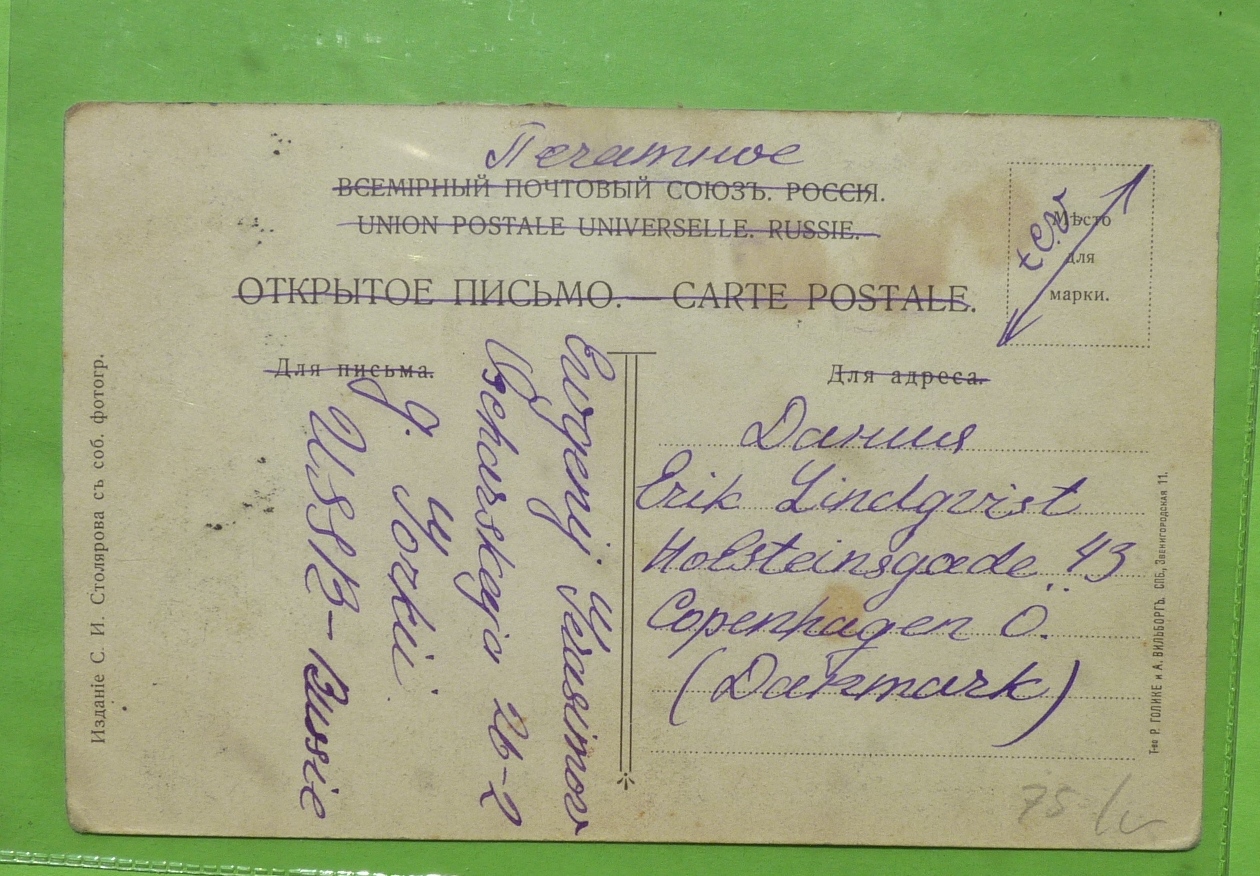 Печатное
ВСЕМІРНЫЙ ПОЧТОВЫЙ СОЮЗЪ. РОССІЯ.
UNION POSTALE UNIVERSELLE. RUSSIE.
ОТКРЫТОЕ ПИСЬМО. — CARTE POSTALE.
Мѣсто
для
марки.
Для письма.
Для адреса.
Дания
Erik Lindqvist
Holsteinsgade 43
Copenhagen Ö.
(Danmark)
Evgenij Gerasimov
26-2
g. Gorkij
USSR - Russie
Изданіе С. И. Столярова съ соб. фотогр.
Т-во Р. ГОЛИКЕ и А. ВИЛЬБОРГЪ. СПБ., Звенигородская 11.
75